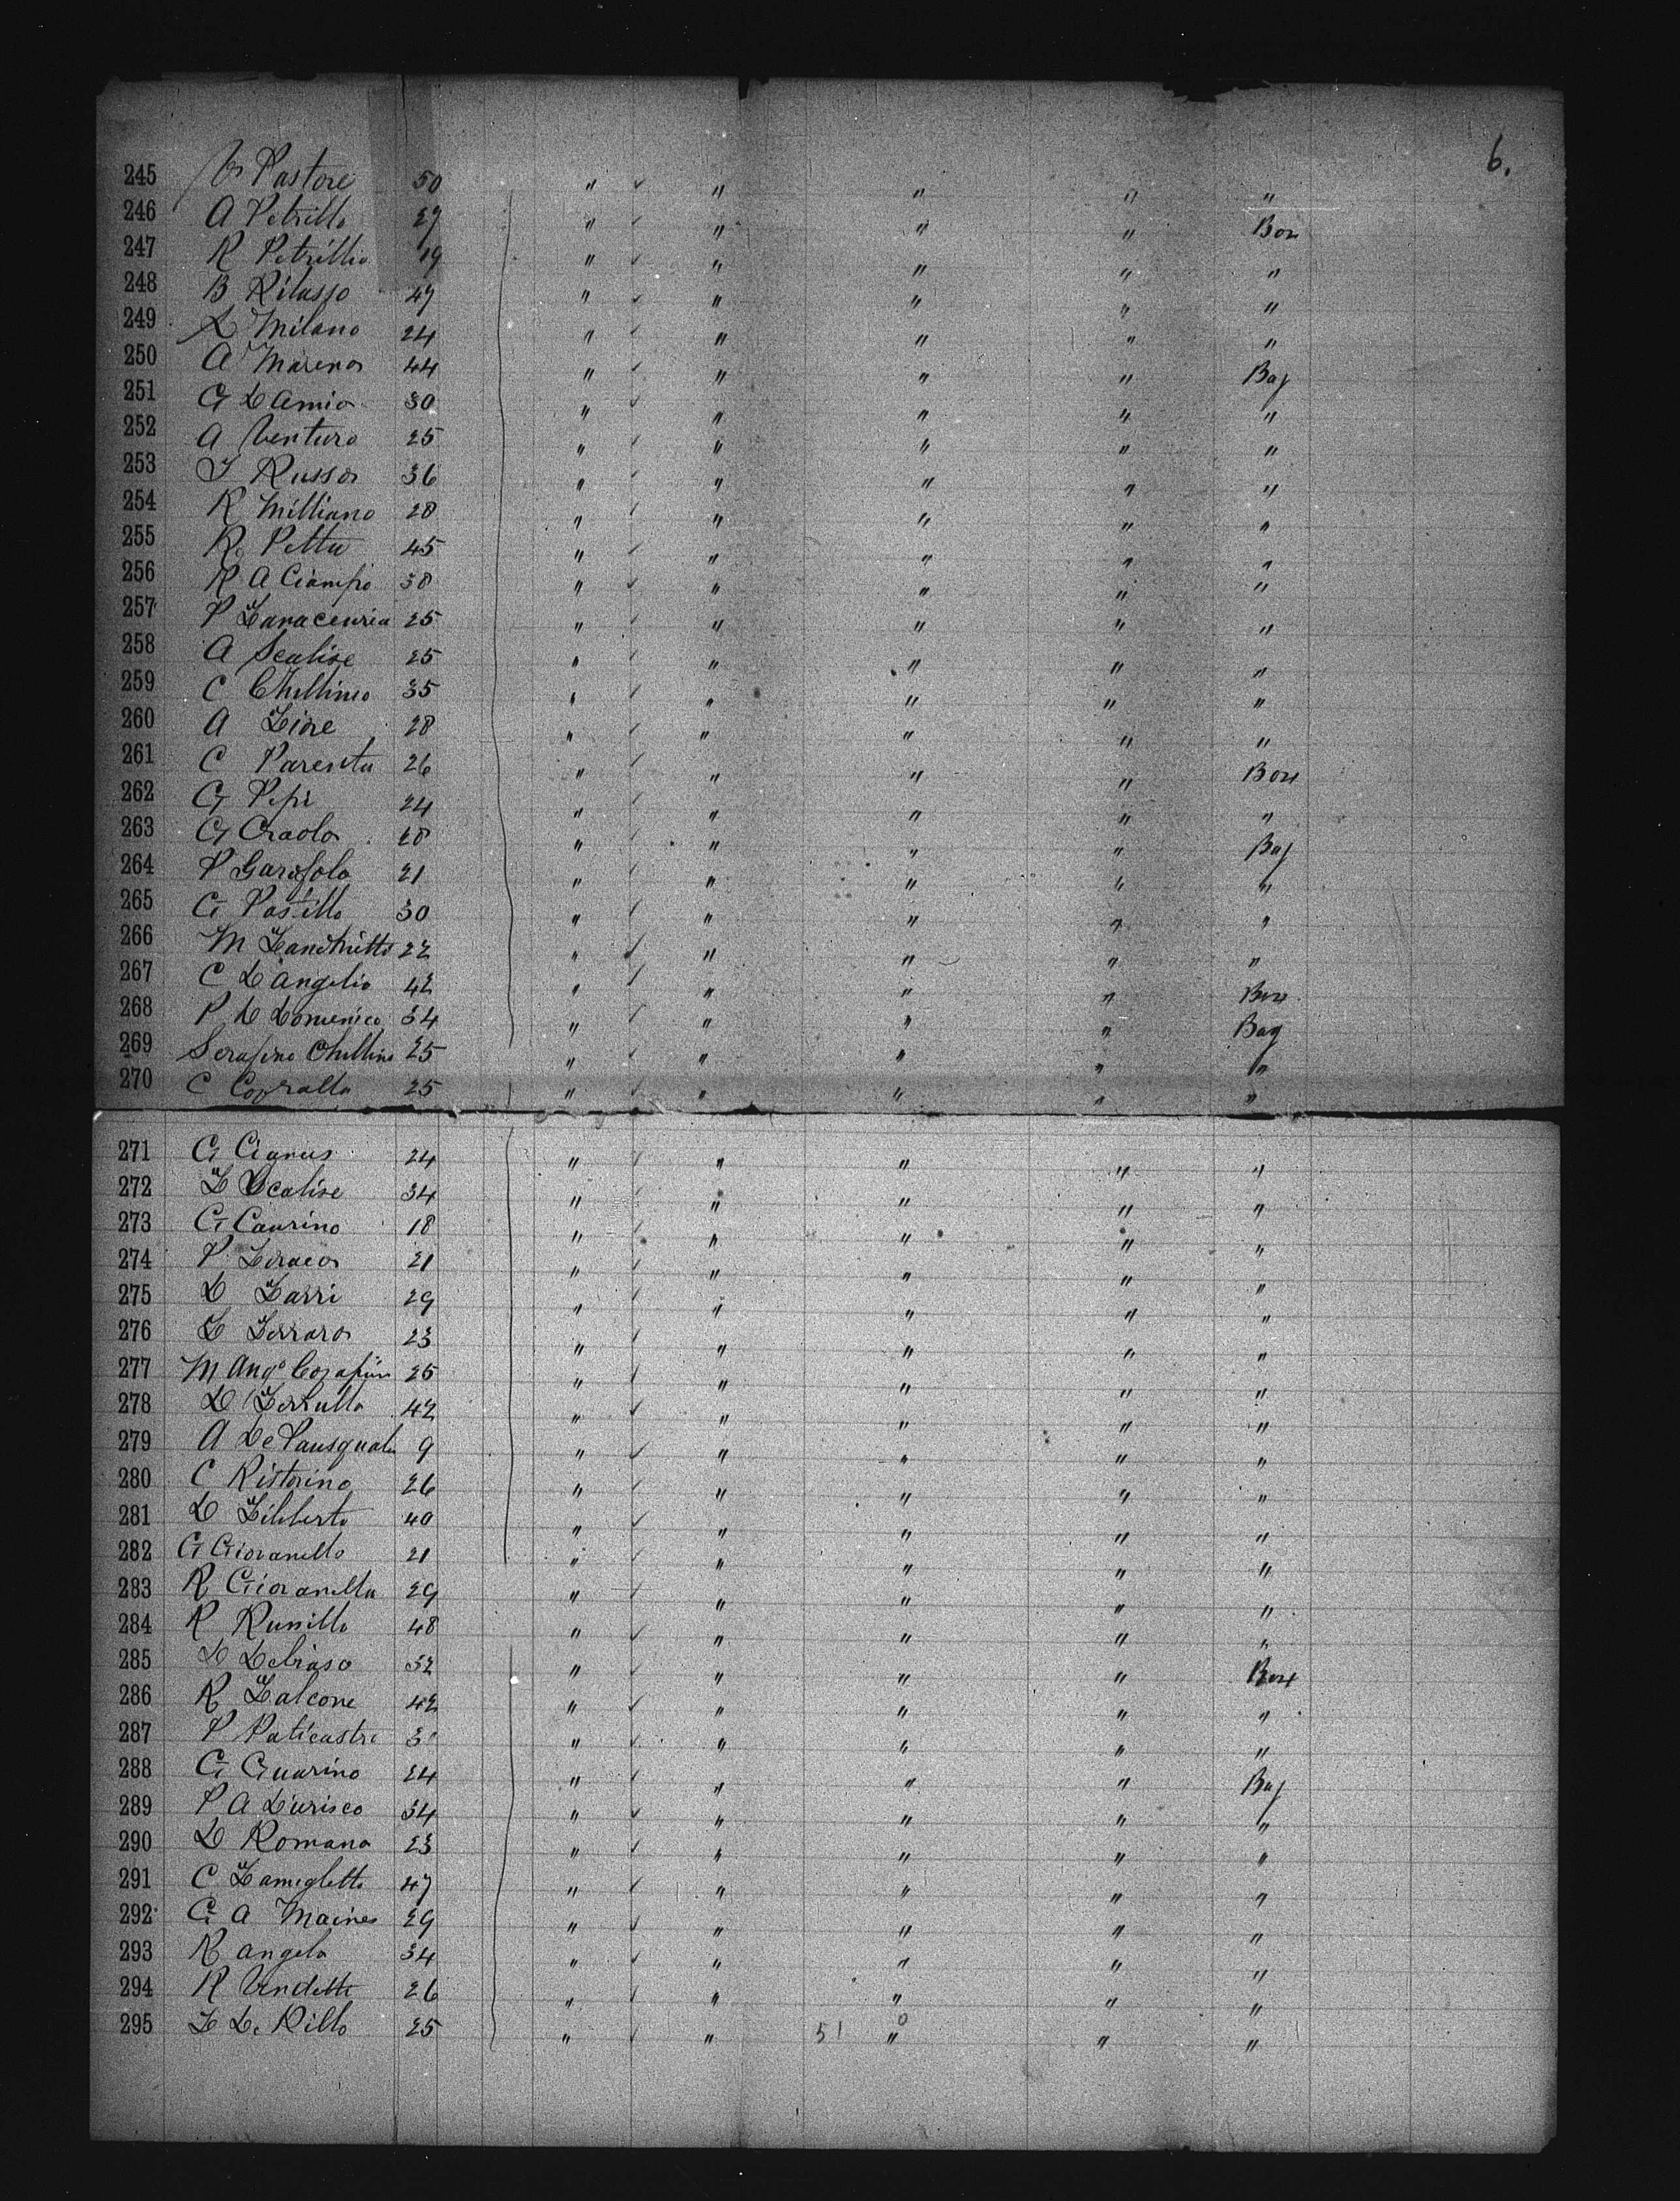 6.
245 V Pastore 50 " ✓ " " " "
246 A Petrillo 27 " ✓ " " " Box
247 R Petrillio 19 " ✓ " " " "
248 B Rilasso 47 " ✓ " " " "
249 L Milano 24 " ✓ " " " "
250 A Mareno 44 " ✓ " " " Bag
251 G D Amio 30 " ✓ " " " "
252 A Venturo 25 " ✓ " " " "
253 J Russo 36 " ✓ " " " "
254 R Milliano 28 " ✓ " " " "
255 R Petta 45 " ✓ " " " "
256 R A Ciampio 38 " ✓ " " " "
257 P 25 " ✓ " " " "
258 A Scalise 25 " ✓ " " " "
259 C Chillino 35 " ✓ " " " "
260 A Fiore 28 " ✓ " " " "
261 C Parenta 26 " ✓ " " " Box
262 G Pepi 24 " ✓ " " " "
263 G Craolo 28 " ✓ " " " Bag
264 P Garofolo 21 " ✓ " " " "
265 G Pasillo 30 " ✓ " " " "
266 M 22 " ✓ " " " "
267 C D Angelio 42 " ✓ " " " Box
268 P D Domenico 34 " ✓ " " " Bag
269 Serafino Chillino 25 " ✓ " " " "
270 C 25 " ✓ " " " "
271 G Cianus 24 " ✓ " " " "
272 F Scalise 34 " ✓ " " " "
273 G Caurino 18 " ✓ " " " "
274 P Feraco 21 " ✓ " " " "
275 D Farri 29 " ✓ " " " "
276 F Ferraro 23 " ✓ " " " "
277 M Ango 25 " ✓ " " " "
278 D Ferrullo 42 " ✓ " " " "
279 A De Pausquale 9 " ✓ " " " "
280 C Ristorino 26 " ✓ " " " "
281 D Filiberto 40 " ✓ " " " "
282 G Giovanello 21 " ✓ " " " "
283 R Giovanella 29 " ✓ " " " "
284 R Runillo 48 " ✓ " " " "
285 D Debiaso 32 " ✓ " " " Box
286 R Falcone 42 " ✓ " " " "
287 P Paticastro " ✓ " " " "
288 G Guarino 24 " ✓ " " " Bag
289 P A Durisco 34 " ✓ " " " "
290 D Romano 23 " ✓ " " " "
291 C Famigletti 47 " ✓ " " " "
292 G A Maines 29 " ✓ " " " "
293 R Angelo 34 " ✓ " " " "
294 R Vendetti 26 " ✓ " " " "
295 F De Rillo 25 " ✓ " 51 0 " " "